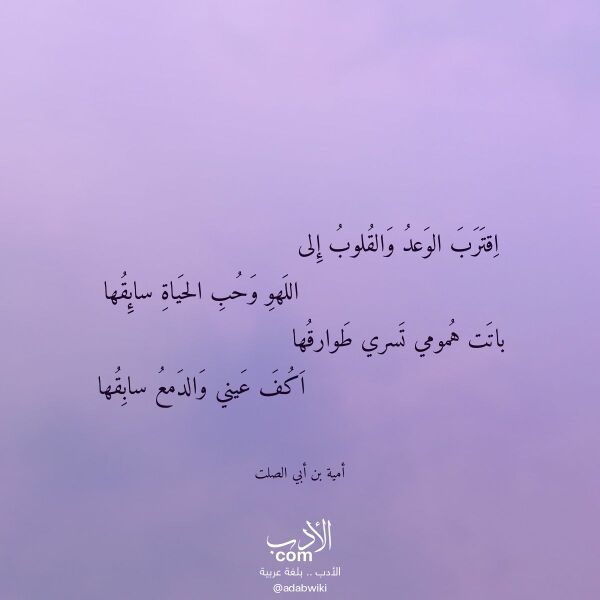 اِقتَرَبَ الوَعدُ وَالقُلوبُ إِلى
اللَهوِ وَحُبِ الحَياةِ سائِقُها
باتَت هُمومي تَسري طَوارقُها
اَكُفَ عَيني وَالدَمعُ سابِقُها
أمية بن أبي الصلت
الأدب
.com
الأدب .. بلغة عربية
@adabwiki